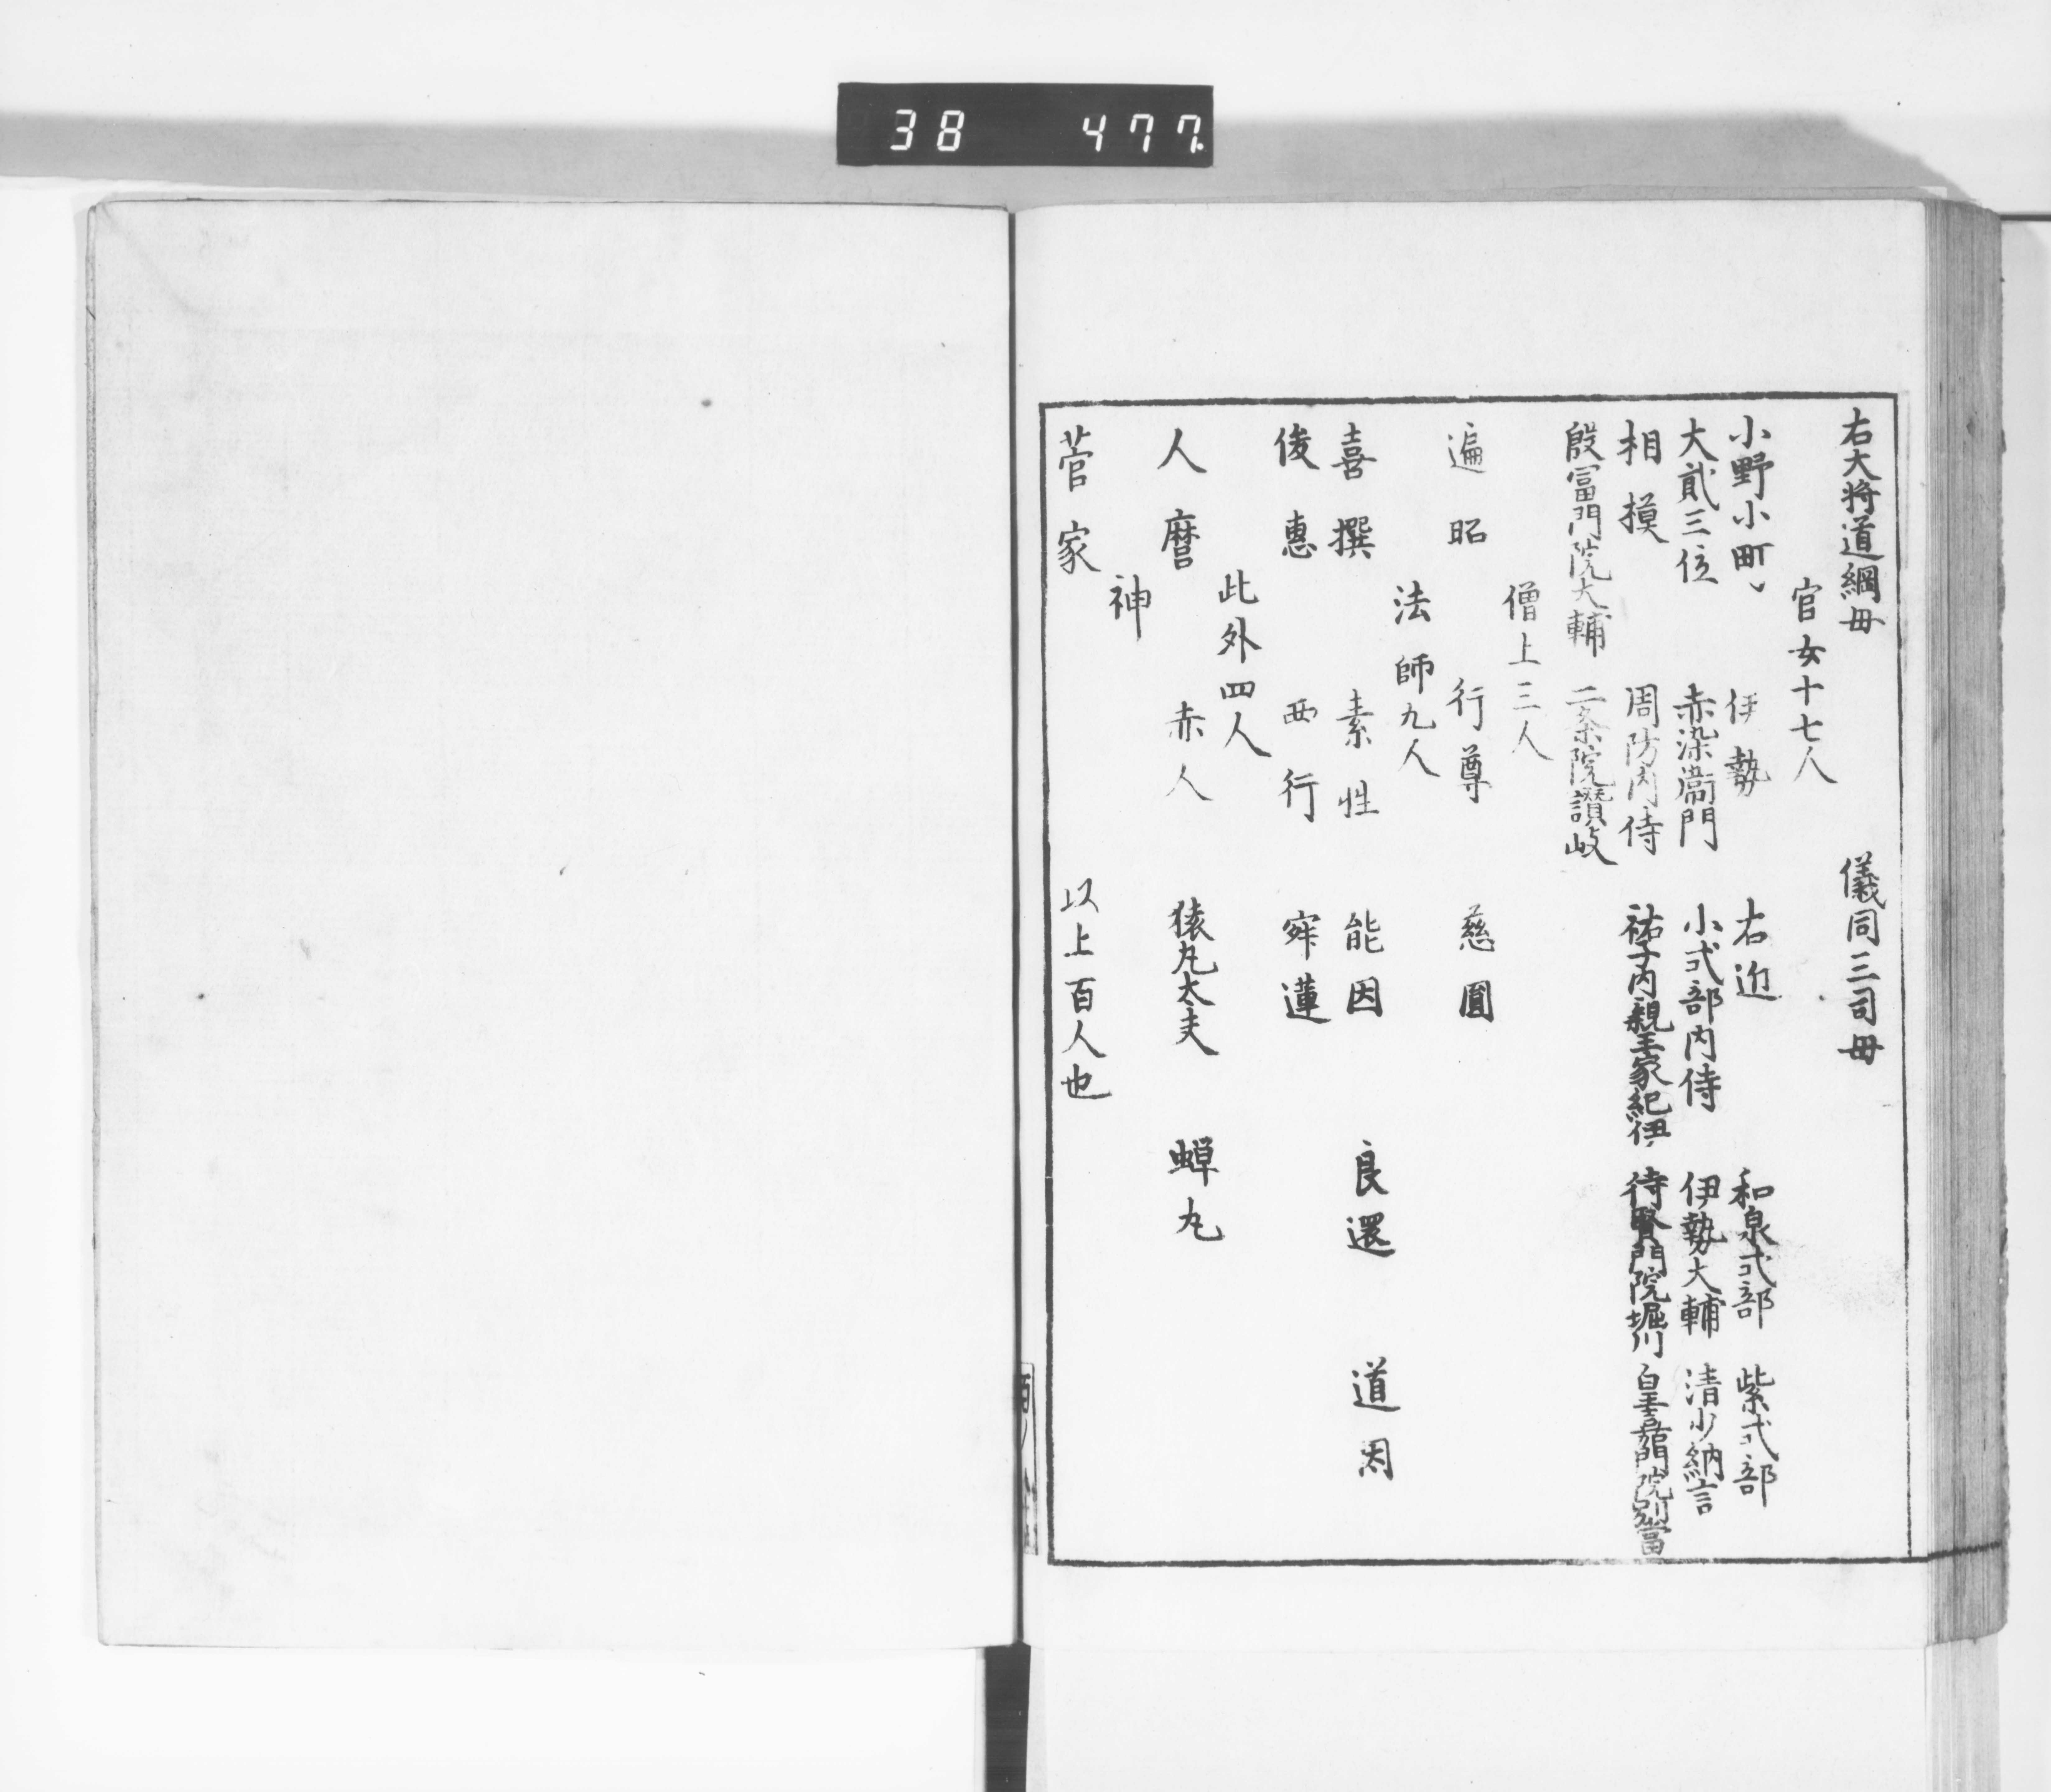 38 477
右大将道綱母 儀同三司母
官女十七人
小野小町 伊勢 右近 和泉式部 紫式部
大貳三位 赤染衞門 小式部内侍 伊勢大輔 清少納言
相摸 周防内侍 祐子内親王家紀伊 待賢門院堀川 皇嘉門院別當
殷富門院大輔 二条院讃岐
僧上三人
遍昭 行尊 慈圓
法師九人
喜撰 素性 能因 良暹 道因
俊惠 西行 寂蓮
此外四人
人麿 赤人 猿丸太夫 蝉丸
神
菅家 以上百人也